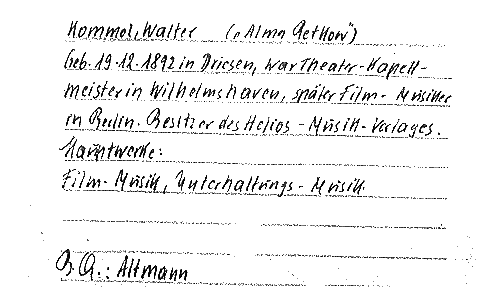 Kommol, Walter („Alma Gethow")
Geb. 19.12.1892 in Driesen, war Theater-Kapell-
meister in Wilhelmshaven, später Film-Musiker
in Berlin. Besitzer des Helios-Musik-Verlages.
Hauptwerke:
Film-Musik, Unterhaltungs-Musik
B.A.: Altmann